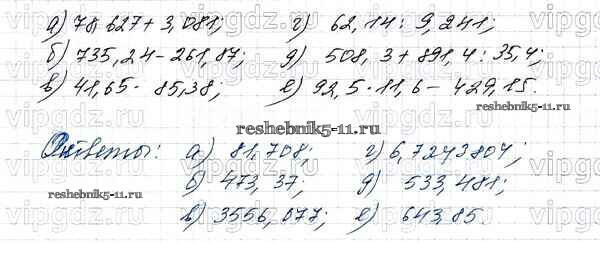 а) 78,627 + 3,081; г) 62,14 : 9,241;
б) 735,24 - 261,87; д) 508,3 + 891,4 : 35,4;
в) 41,65 · 85,38; е) 92,5 · 11,6 - 429,15.
reshebnik5-11.ru
reshebnik5-11.ru
Ответы: а) 81,708; г) 6,7243804;
reshebnik5-11.ru
б) 473,37; д) 533,481;
в) 3556,077; е) 643,85.
vipgdz.ru